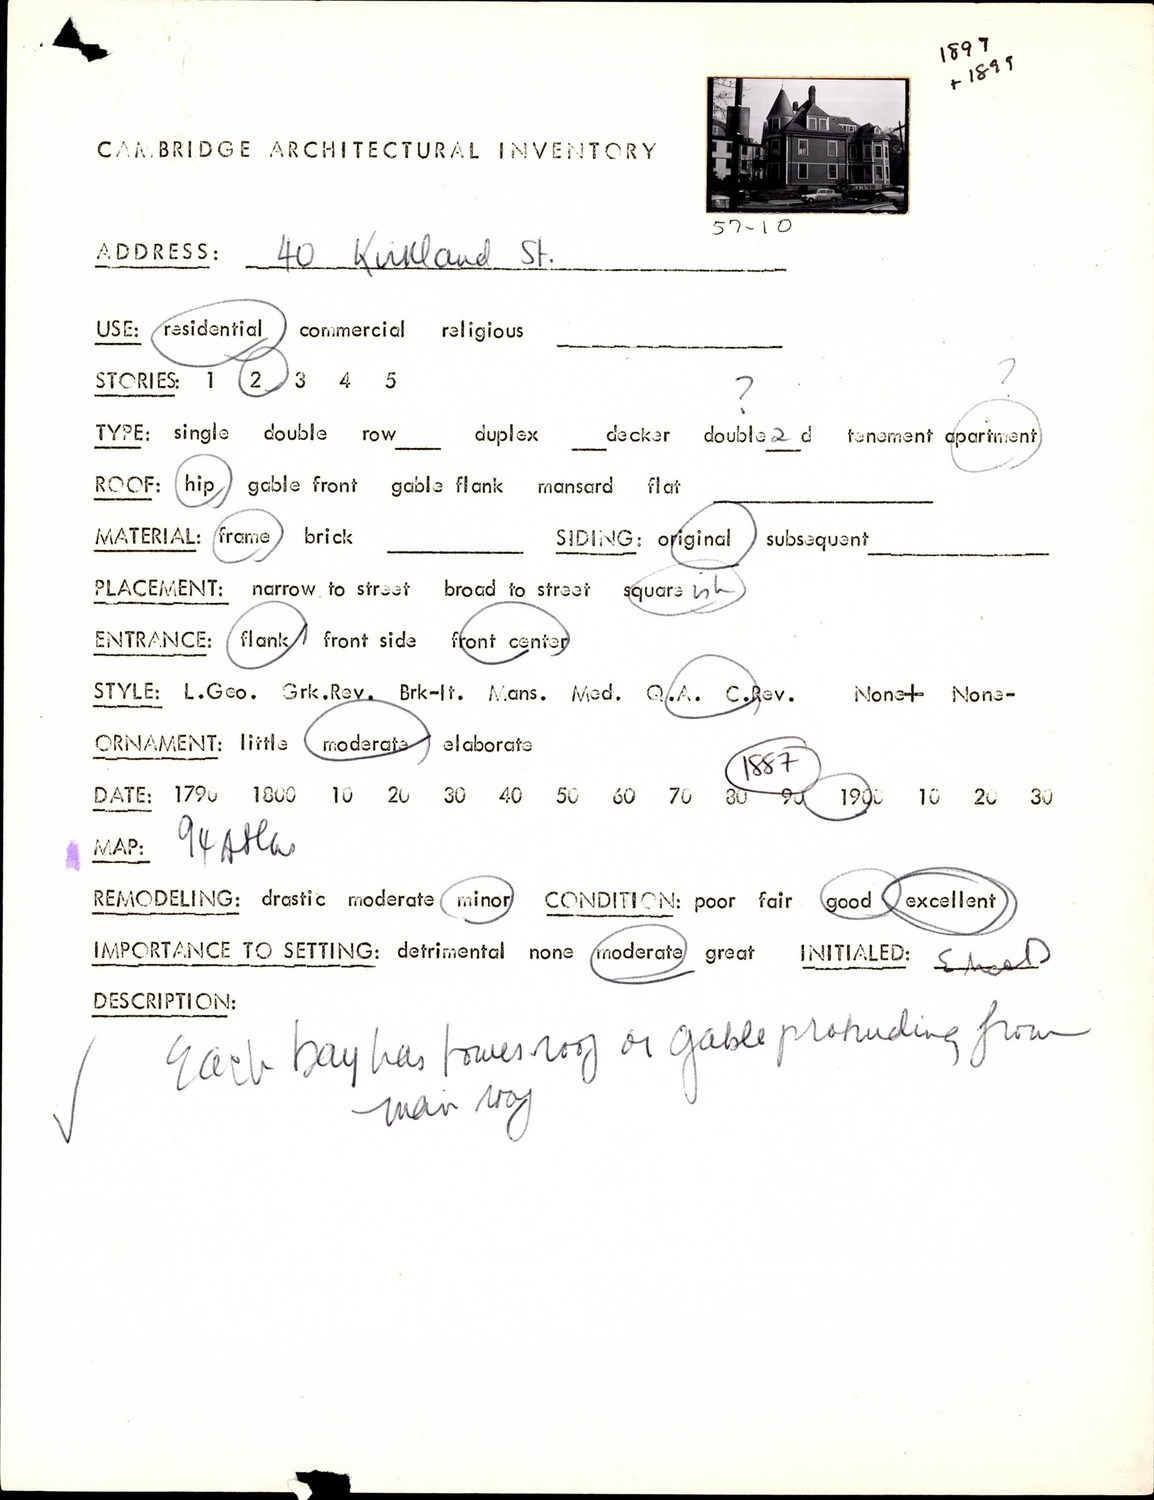 1897
+ 1899
CAMBRIDGE ARCHITECTURAL INVENTORY
57-10
ADDRESS: 40 Kirkland St.
USE: residential commercial religious
STORIES: 1 2 3 4 5
? ?
TYPE: single double row___ duplex ___decker double 2 d tenement apartment
ROOF: hip gable front gable flank mansard flat
MATERIAL: frame brick SIDING: original subsequent
PLACEMENT: narrow to street broad to street square ish
ENTRANCE: flank front side front center
STYLE: L.Geo. Grk.Rev. Brk-It. Mans. Med. Q.A. C.Rev. None+ None-
ORNAMENT: little moderate elaborate
1887
DATE: 1790 1800 10 20 30 40 50 60 70 80 90 1900 10 20 30
MAP: 94 Atlas
REMODELING: drastic moderate minor CONDITION: poor fair good excellent
IMPORTANCE TO SETTING: detrimental none moderate great INITIALED:
DESCRIPTION:
Each bay has tower roof or gable protruding from
main roof